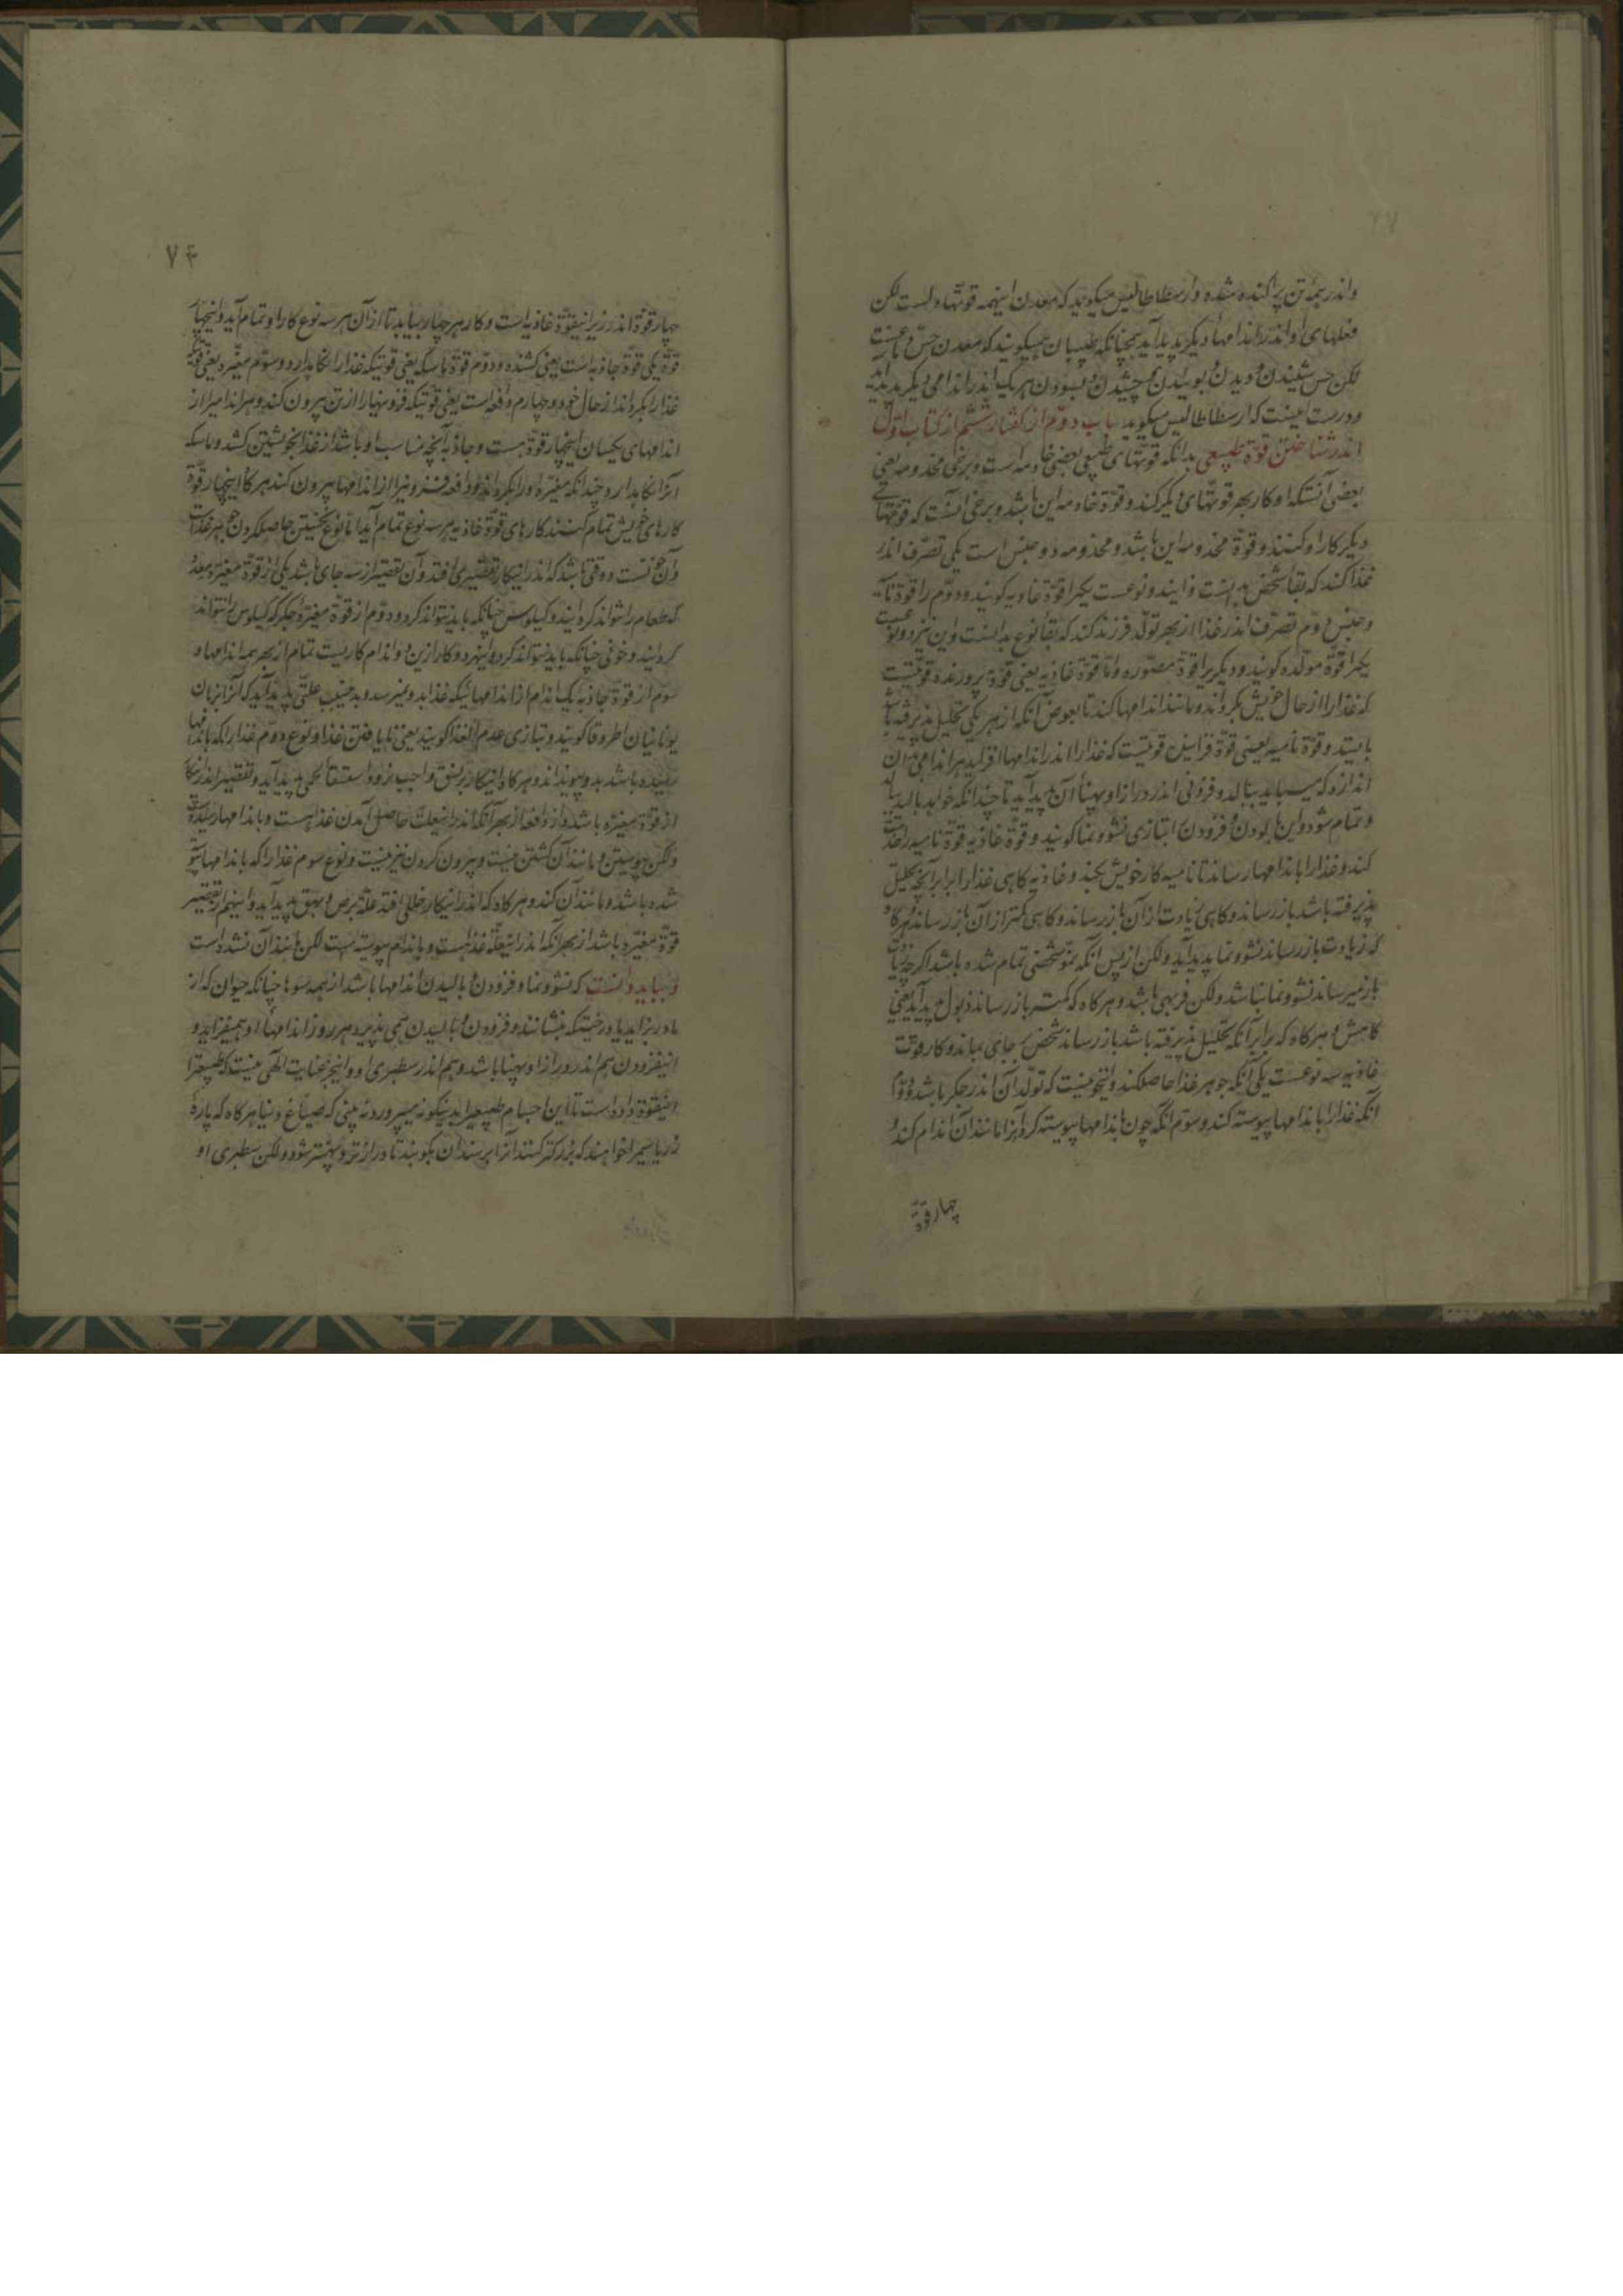 واندر همه تن پراکنده شده وارسطاطالیس میکوید که معدن اینهمه قوتها دلست لکن
فعلهای او اندر اندامهاء دیکر پدید آید همچنانکه طبیبان همیکویند که معدن حس دماغست
لکن حس شنیدن و دیدن و بوئیدن و چشیدن و بسودن هر یک اندر اندامی دیکر پدید آید
ودرست اینست که ارسطاطالیس میکوید باب دوم از کفتار ششم از کتاب اول
اندر شناختن قوة طبیعی بدانکه قوتهای طبیعی بعضی خادمه است و برخی مخدومه یعنی
بعضی آنستکه او کار بهر قوتهای دیکر کند و قوة خادمه این باشد و برخی آنست که قوتهای
دیکر کار او کنند و قوة مخدومه این باشد و مخدومه دو جنس است یکی تصرف اندر
غذا کند که بقا شخص بدانست و این دو نوعست یکیرا قوة غاذیه کویند و دوم را قوة نامیه
وجنس دوم تصرف اندر غذا از بهر تولد فرزند کند که بقا نوع بدانست و این نیز دو نوعست
یکیرا قوة مولده کویند و دیکریرا قوة مصوره واما قوة غاذیه یعنی قوة پرورنده قوتیست
که غذا را از حال خویش بکرداند و مانند اندامها کند تا بعوض آنکه از هر یکی تحلیل پذیرفته باشد
بایستد و قوة نامیه یعنی قوة فزاینده قوتیست که غذا را اندر اندامها افزاید هر اندامی بدان
اندازه که میباید ببالد و فزونی اندر درازا و پهنا آن پدید آید تا چندانکه خواهد بالید ببالد
وتمام شود و این بالودن و فزودن را بتازی نشو و نما کویند و قوة غاذیه قوة نامیه را خدمت
کند و غذا را باندامها رساند تا نامیه کار خویش بکند و غاذیه کاهی غذا را برابر آنچه تحلیل
پذیرفته باشد باز رساند و کاهی زیادت از آن باز رساند و کاهی کمتر از آن باز رساند هرکاه
که زیادت باز رساند نشو و نما پدید آید ولکن از پس آنکه نمو شخص تمام شده باشد اکر چه زیادت
باز میرساند نشو و نما نباشد ولکن فربهی باشد و هرکاه که کمتر باز رساند ذبول پدید آید یعنی
کاهش و هرکاه که برابر آنکه تحلیل پذیرفته باشد باز رساند شخص بر جای بماند و کار قوت
غاذیه سه نوعست یکی آنکه جوهر غذا حاصل کند و اینخونیست که تولد آن اندر جکر باشد و دوم
آنکه غذا را باندامها پیوسته کند و سوم آنکه چون باندامها پیوسته کرد آنرا مانند آن اندام کند و
چهار قوة
٧٤
چهار قوة اندر زیر اینقوة غاذیه است و کار هر چهار بباید تا از آن هر سه نوع کار او تمام آید و اینچهار
قوة یکی قوة جاذبه است یعنی کشنده و دوم قوة ماسکه یعنی قوتیکه غذا را نکاه دارد و سوم مغیره یعنی قوتیکه
غذا را بکرداند از حال خود و چهارم دافعه است یعنی قوتیکه فزونیها را از تن بیرون کند و هر اندامیرا از
اندامهای یکسان اینچهار قوة هست و جاذبه آنچه مناسب او باشد از غذا بخویشتن کشد و ماسکه
آنرا نکاه دارد چندانکه مغیره او را بکرداند و دافعه فزونیرا از اندامها بیرون کند هرکاه اینچهار قوة
کارهای خویش تمام کنند کارهای قوة غاذیه بهر سه نوع تمام آید اما نوع نخستین حاصل کردن جوهر غذاست
وآن خونست و وقتی باشد که اندر اینکار تقصیری افتد و آن تقصیر از سه جای باشد یکی از قوة مغیره معده
که طعام را نتواند کردانید و کیلوس چنانکه باید نتواند کرد و دوم از قوة مغیره جکر که کیلوس را نتواند
کردانید و خونی چنانکه باید نتواند کرد و اینهر دو کار ازین دو اندام کاریست تمام از بهر همه اندامها و
سوم از قوة جاذبه یک اندام از اندامها نیکه غذا بدو نمیرسد و بدینسبب علتی پدید آید که آنرا بزبان
یونانیان اطروفا کویند و بتازی عدم الغذا کویند یعنی نایافتن غذا و نوع دوم غذا را که باندامها
رسیده باشد بدو پیوندانند و هرکاه اینکار بر نسق واجب نرود استسقاء لحمی پدید آید و تقصیر اندر اینکار
از قوة مغیره باشد و از دافعه از بهر آنکه اندر اینعلت حاصل آمدن غذا هست و باندامها رسیده
ولکن پیوستن و مانند آن کشتن نیست و بیرون کردن نیز نیست و نوع سوم غذا را که باندامها پیوسته
شده باشد و مانند آن کند و هرکاه که اندر اینکار خللی افتد علة برص و بهق پدید آید و اینهم از تقصیر
قوة مغیره باشد از بهر آنکه اندر اینعلة غذا هست و باندام پیوسته است لکن مانند آن نشده است
وبباید دانست که نشو و نما و فزودن و بالیدن اندامها باشد از همه سوها چنانکه حیوان که از
مادر بزاید یا درختیکه بنشانند و فزودن و بالیدن همی پذیرد هر روز اندامهاء او همیفزاید و
اینفزودن هم اندر درازا و پهنا باشد و هم اندر سطبری او و اینجز عنایت الهی نیست که طبیعترا
اینقوة داده است تا این اجسام طبیعیرا بدینکونه میپرورد نه بینی که صیاغ دنیا هرکاه که پارهٔ
زر یا سیم را خواهند که بزرکتر کنند آنرا بر سندان بکوبند تا درازتر و پهنتر شود ولکن سطبری او